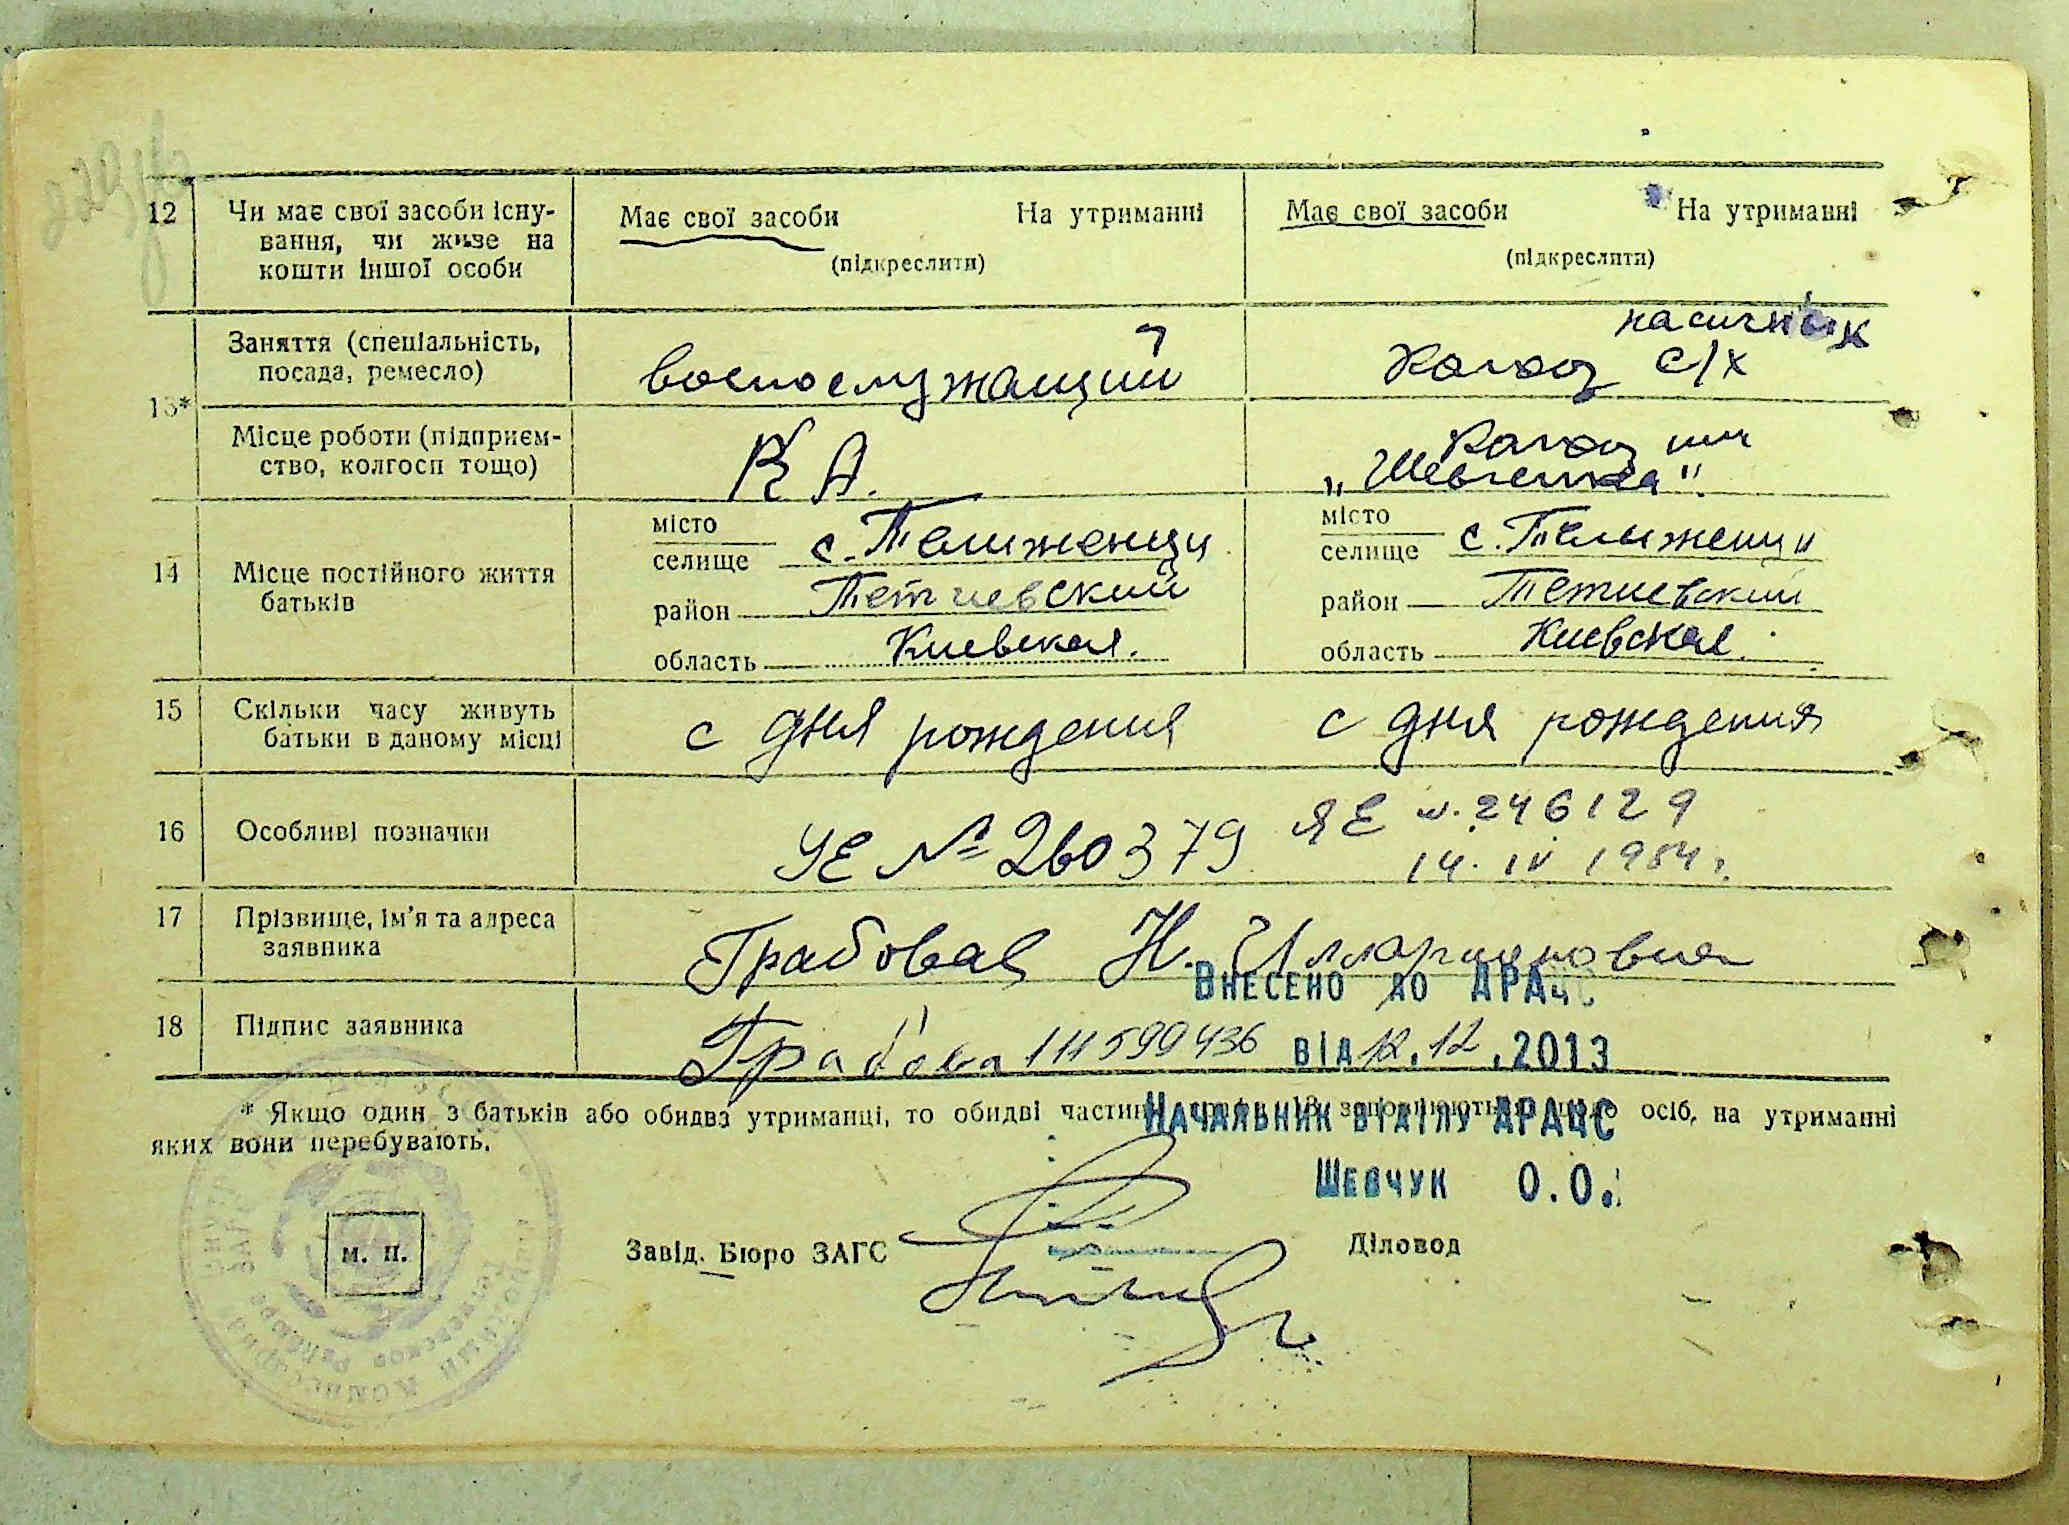 12 Чи має свої засоби існу- Має свої засоби На утриманні Має свої засоби На утриманні
вання, чи живе на (підкреслити) (підкреслити)
кошти іншої особи
Заняття (спеціальність,
посада, ремесло)
военослужащий
с/х
13*
Місце роботи (підприєм-
ство, колгосп тощо)
К А.
„Шевченка"
14 Місце постійного життя
батьків
місто
селище с. Телиженци
район Тетиевский
область Киевская.
місто
селище с. Телиженци
район Тетиевский
область Киевская.
15 Скільки часу живуть
батьки в даному місці
с дня рождения с дня рождения
16 Особливі позначки УЕ № 260379 ЯЕ N. 246129
14. IV 1954 г.
17 Прізвище, ім'я та адреса
заявника
Грабовая Н. Илларионовна
Внесено до ДРАЦС
18 Підпис заявника Грабова 111599436 від 12.12.2013
* Якщо один з батьків або обидва утриманці, то обидві частини осіб, на утриманні
яких вони перебувають.
Начальник відділу ДРАЦС
Шевчук О.О.
м. п. Завід. Бюро ЗАГС Діловод